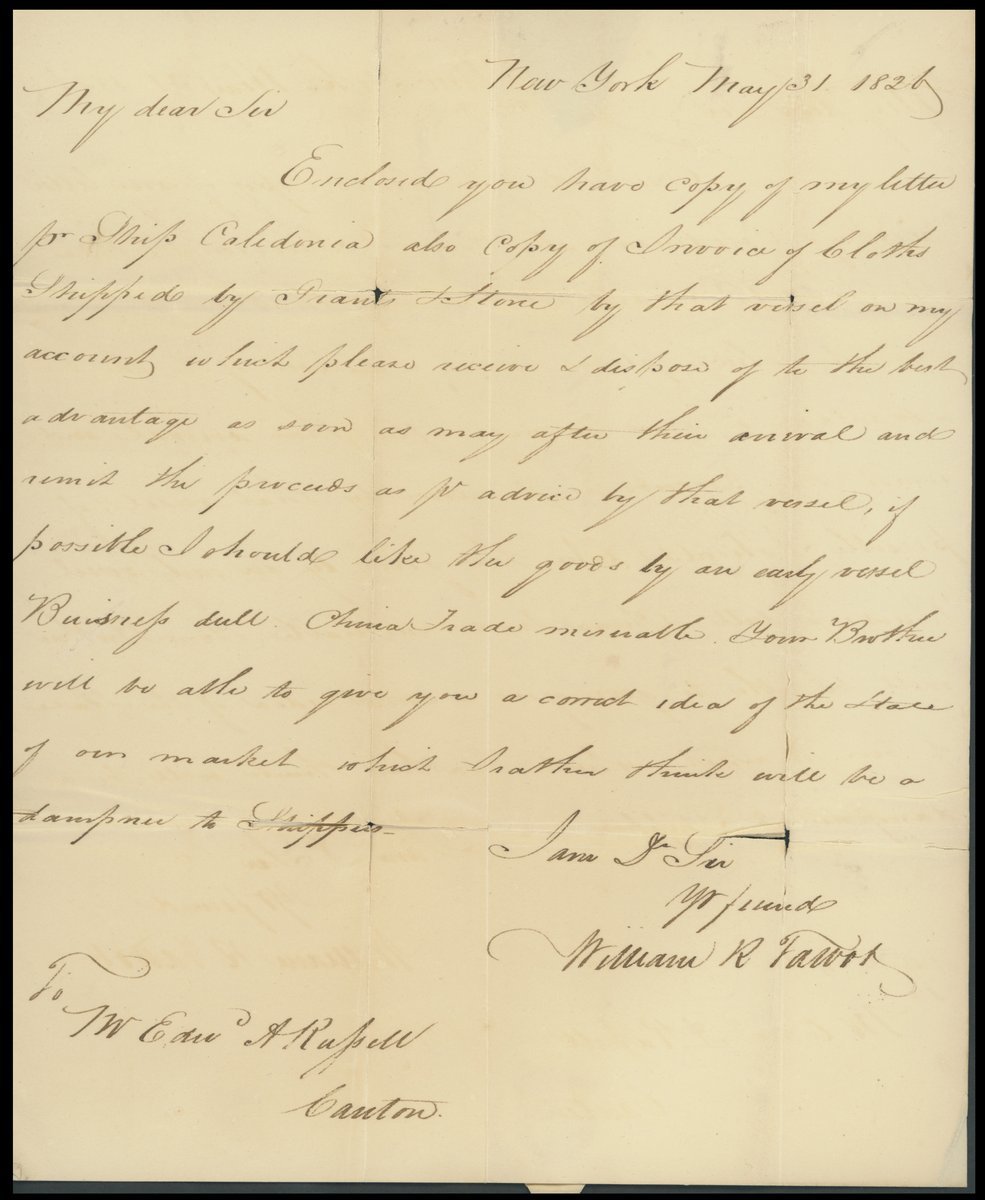 New York May 31. 1826
My dear Sir
Enclosed you have copy of my letter
pr Ship Caledonia also copy of Invoice of Cloths
Shipped by Grants & Stone by that vessel on my
account which please receive & dispose of to the best
advantage as soon as may after their arrival and
remit the proceeds as pr advice by that vessel, if
possible I should like the goods by an early vessel
Buisness dull. China Trade miserable. Your Brother
will be able to give you a correct idea of the State
of our market which I rather think will be a
dampner to Shippers
I am Dr Sir
Yr friend
William R Talbot
To
Mr Edwd A Russell
Canton.